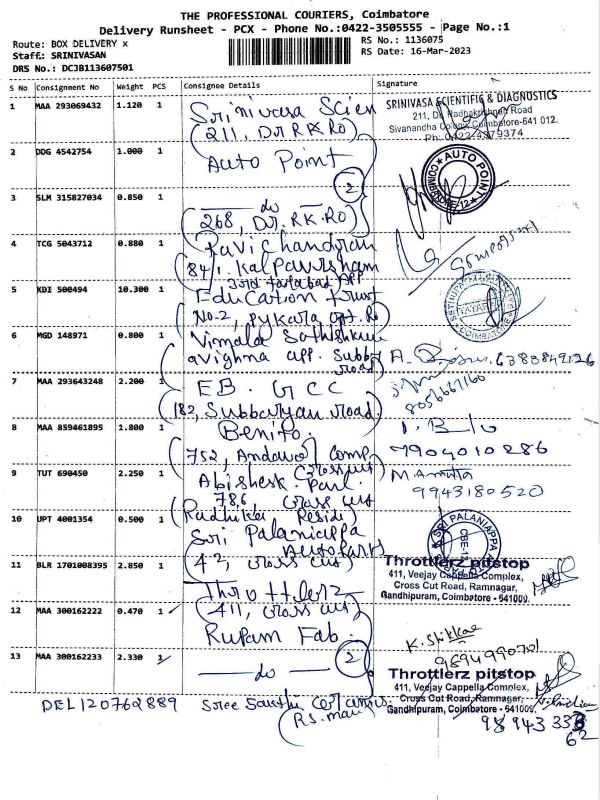 THE PROFESSIONAL COURIERS, Coimbatore
Delivery Runsheet - PCX - Phone No.:0422-3505555 - Page No.:1
Route: BOX DELIVERY x
RS No.: 1136075
Staff: SRINIVASAN
RS Date: 16-Mar-2023
DRS No.: DCJB113607501
S No Consignment No Weight PCS Consignee Details Signature
1 MAA 293069432 1.120 1 Srinivasa Scien
(211, Dr RK Ro)
SRINIVASA SCIENTIFIC & DIAGNOSTICS
211, Dr. Radhakrishnan Road
Sivanandha Colony, Coimbatore-641 012.
Ph: 0422-4979374
2 DDG 4542754 1.000 1 Auto Point
AUTO POINT
COIMBATORE-12
2
3 SLM 315827034 0.850 1 do
(268, Dr. RK. Ro)
4 TCG 5043712 0.880 1 Ravi Chandran
(84/1. Kalpavrisham
App
5 KDI 500494 10.300 1 Education Trust
No-2, Pykara
6 MGD 148971 0.800 1 Vimala
avighna app. Subbu
road)
6380849126
7 MAA 293643248 2.200 1 EB. GCC
(182, Subbaryan road)
8056667160
8 MAA 859461895 1.800 1 Benito.
(752, Andavar Comp
Crosscut
7904010286
9 TUT 690450 2.250 1 Abishesk. Parl.
786, cross cut
(Radhika Reside)
9943180520
10 UPT 4001354 0.500 1 Sri Palaniappa
Autoparts
(42, cross cut)
SRI PALANIAPPA
CBE-12
11 BLR 1701008395 2.850 1 Throttlerz
(411, cross cut)
Throttlerz pitstop
411, Veejay Cappella Complex,
Cross Cut Road, Ramnagar,
Gandhipuram, Coimbatore - 641009.
12 MAA 300162222 0.470 1 Rupam Fab
9894990701
13 MAA 300162233 2.330 1 do 2
Throttlerz pitstop
411, Veejay Cappella Complex,
Cross Cut Road, Ramnagar,
Gandhipuram, Coimbatore - 641009.
DEL120762889 Sree Santhi
(R.S.
98943 333
62